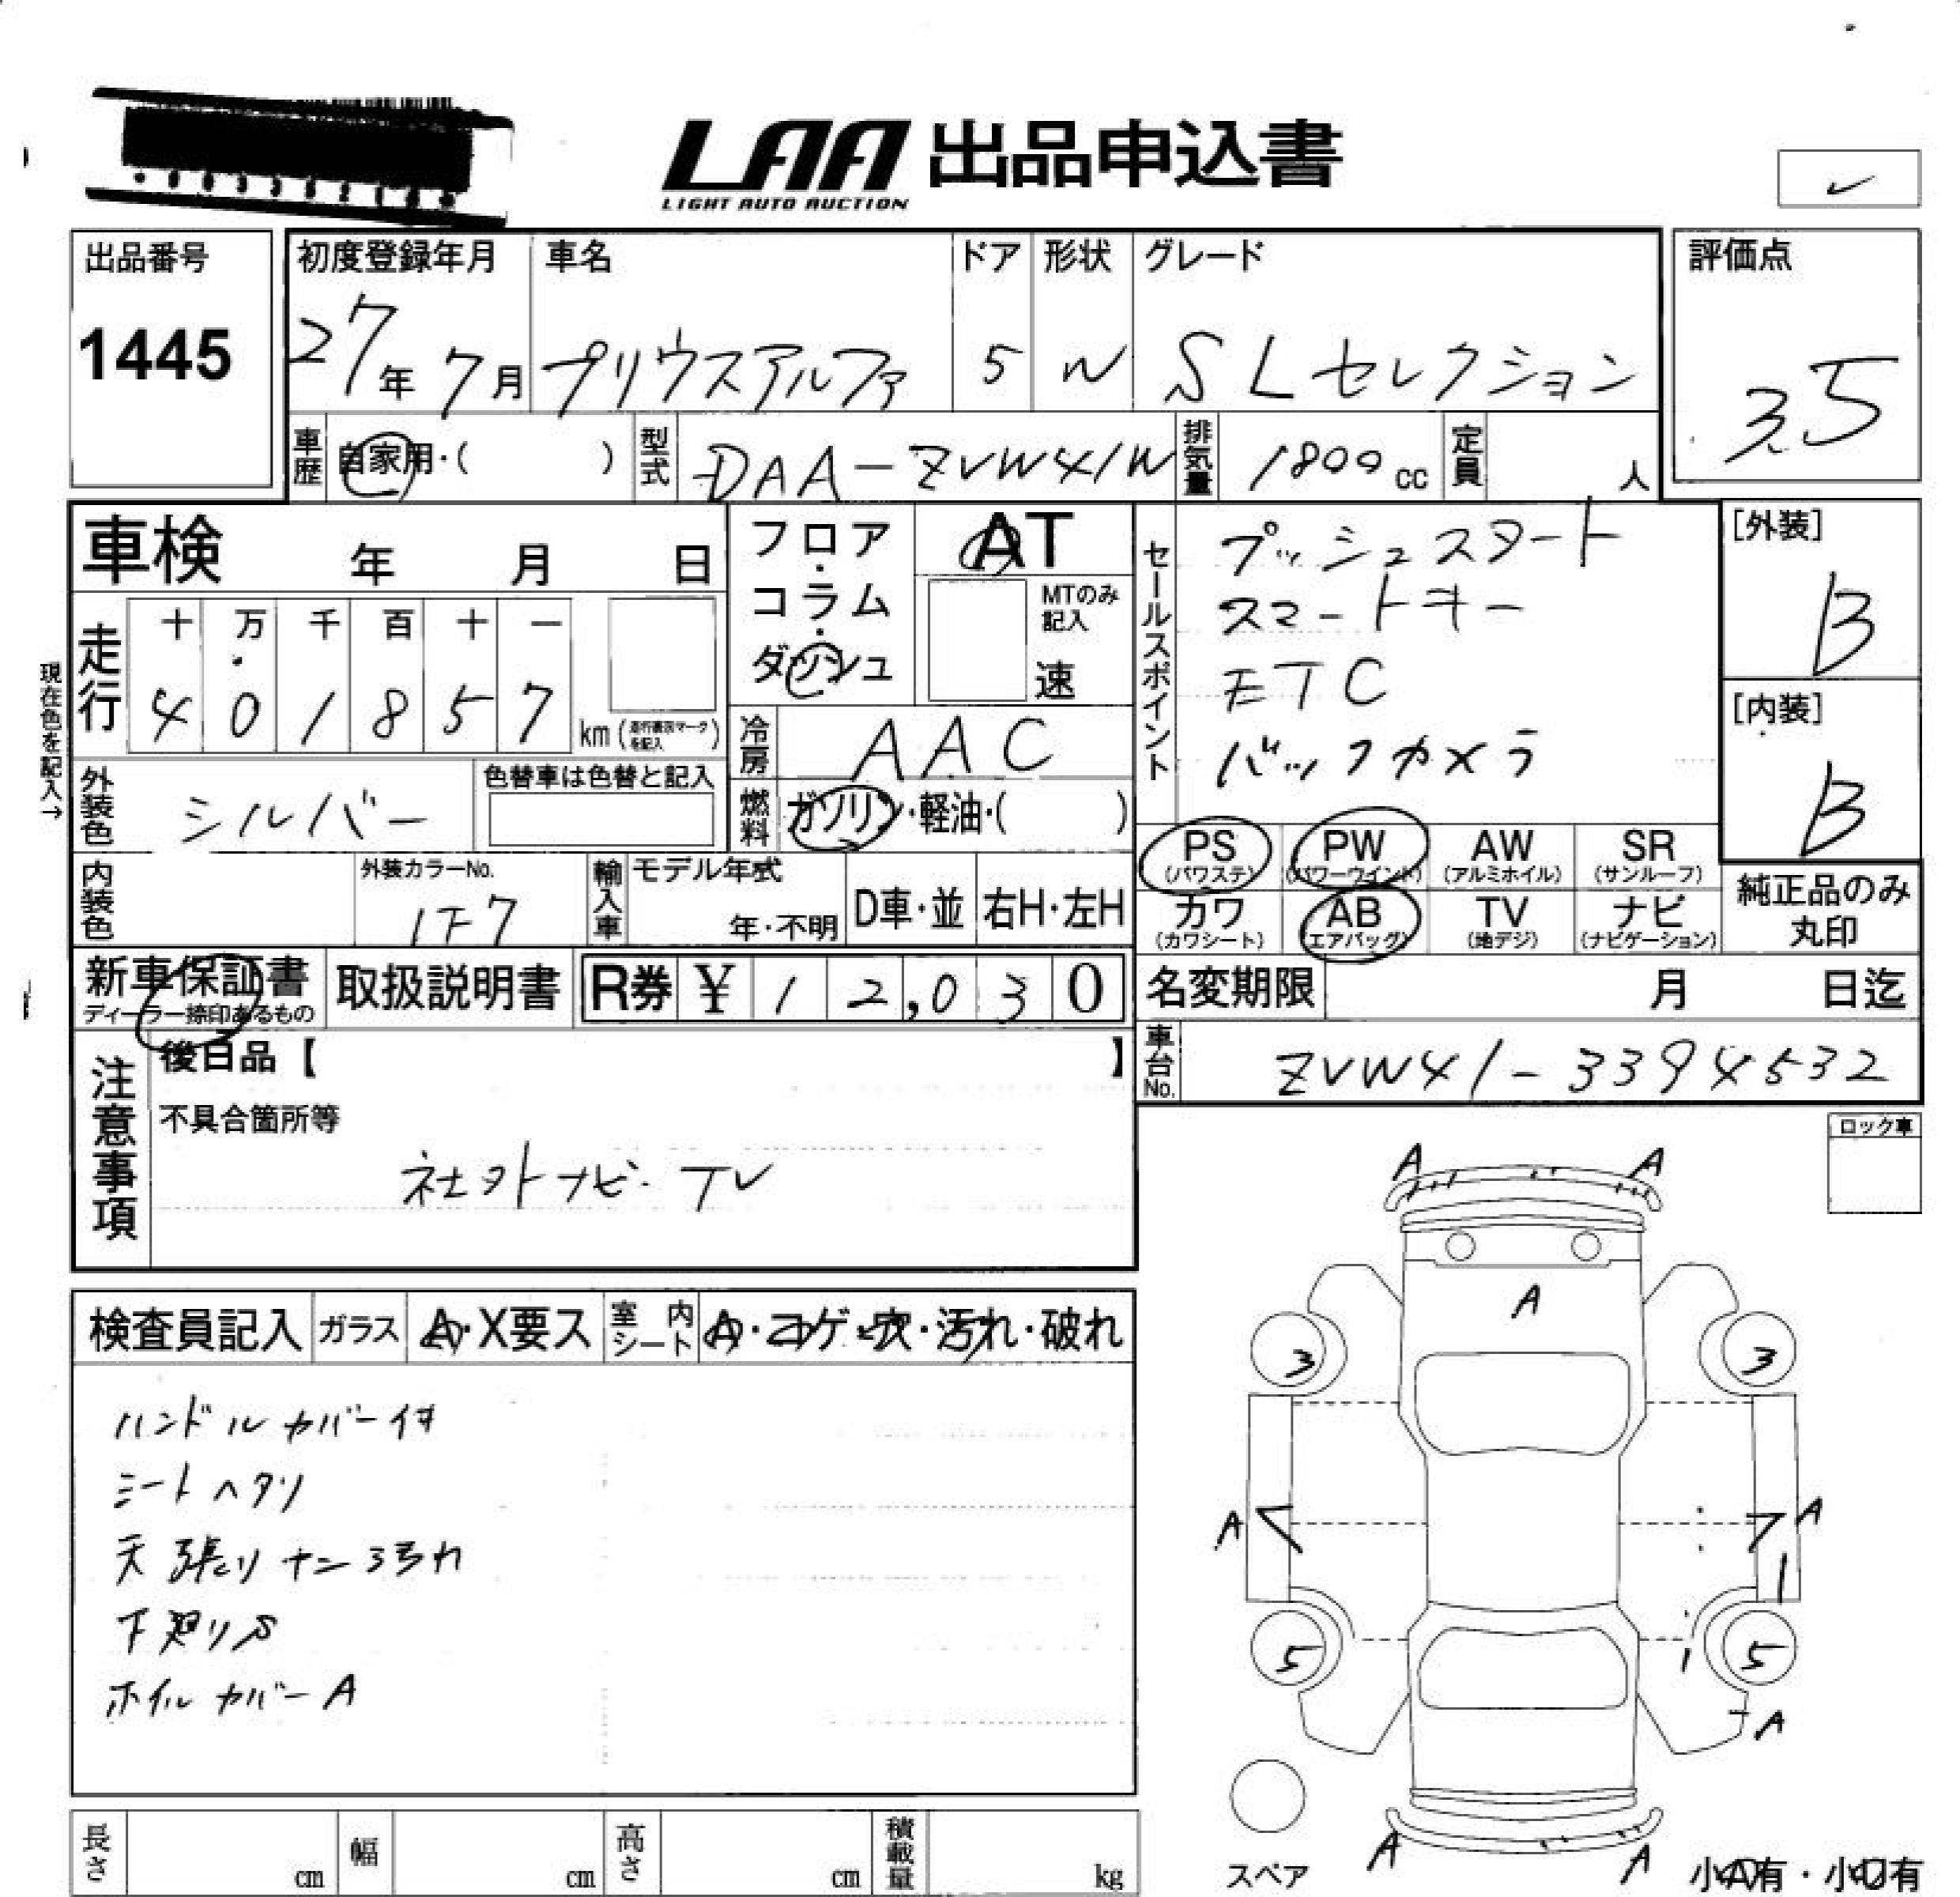 LAA 出品申込書
LIGHT AUTO AUCTION
出品番号
1445
初度登録年月
27年 7月
車名
プリウスアルファ
ドア
5
形状
W
グレード
SLセレクション
評価点
3.5
車歴 自家用・( )
型式 DAA-ZVW41W
排気量 1800cc
定員 人
車検 年 月 日
フロア・コラム・ダッシュ
AT
MTのみ記入
速
セールスポイント
プッシュスタート
スマートキー
ETC
バックカメラ
[外装]
B
[内装]
B
走行
十 万 千 百 十 一
4 0 1 8 5 7 km
現在色を記入→
冷房 AAC
外装色 シルバー
色替車は色替と記入
燃料 ガソリン・軽油・( )
PS (パワステ) PW (パワーウインド) AW (アルミホイル) SR (サンルーフ)
カワ (カワシート) AB (エアバッグ) TV (地デジ) ナビ (ナビゲーション)
純正品のみ丸印
内装色
外装カラーNo.
1F7
輸入車
モデル年式
年・不明
D車・並
右H・左H
新車保証書
ディーラー捺印あるもの
取扱説明書
R券 ¥12,030
名変期限 月 日迄
車台No. ZVW41-3394532
注意事項
後日品【 】
不具合箇所等
社外ナビ・TV
ロック車
検査員記入
ガラス A・X要ス
室内シート A・コゲ・穴・汚れ・破れ
ハンドルカバー付
シートヘタリ
天張りナン汚れ
下廻りS
ホイルカバーA
A A
A
3 3
A A
5 5
A
A A
スペア
小A有・小U有
長さ cm
幅 cm
高さ cm
積載量 kg